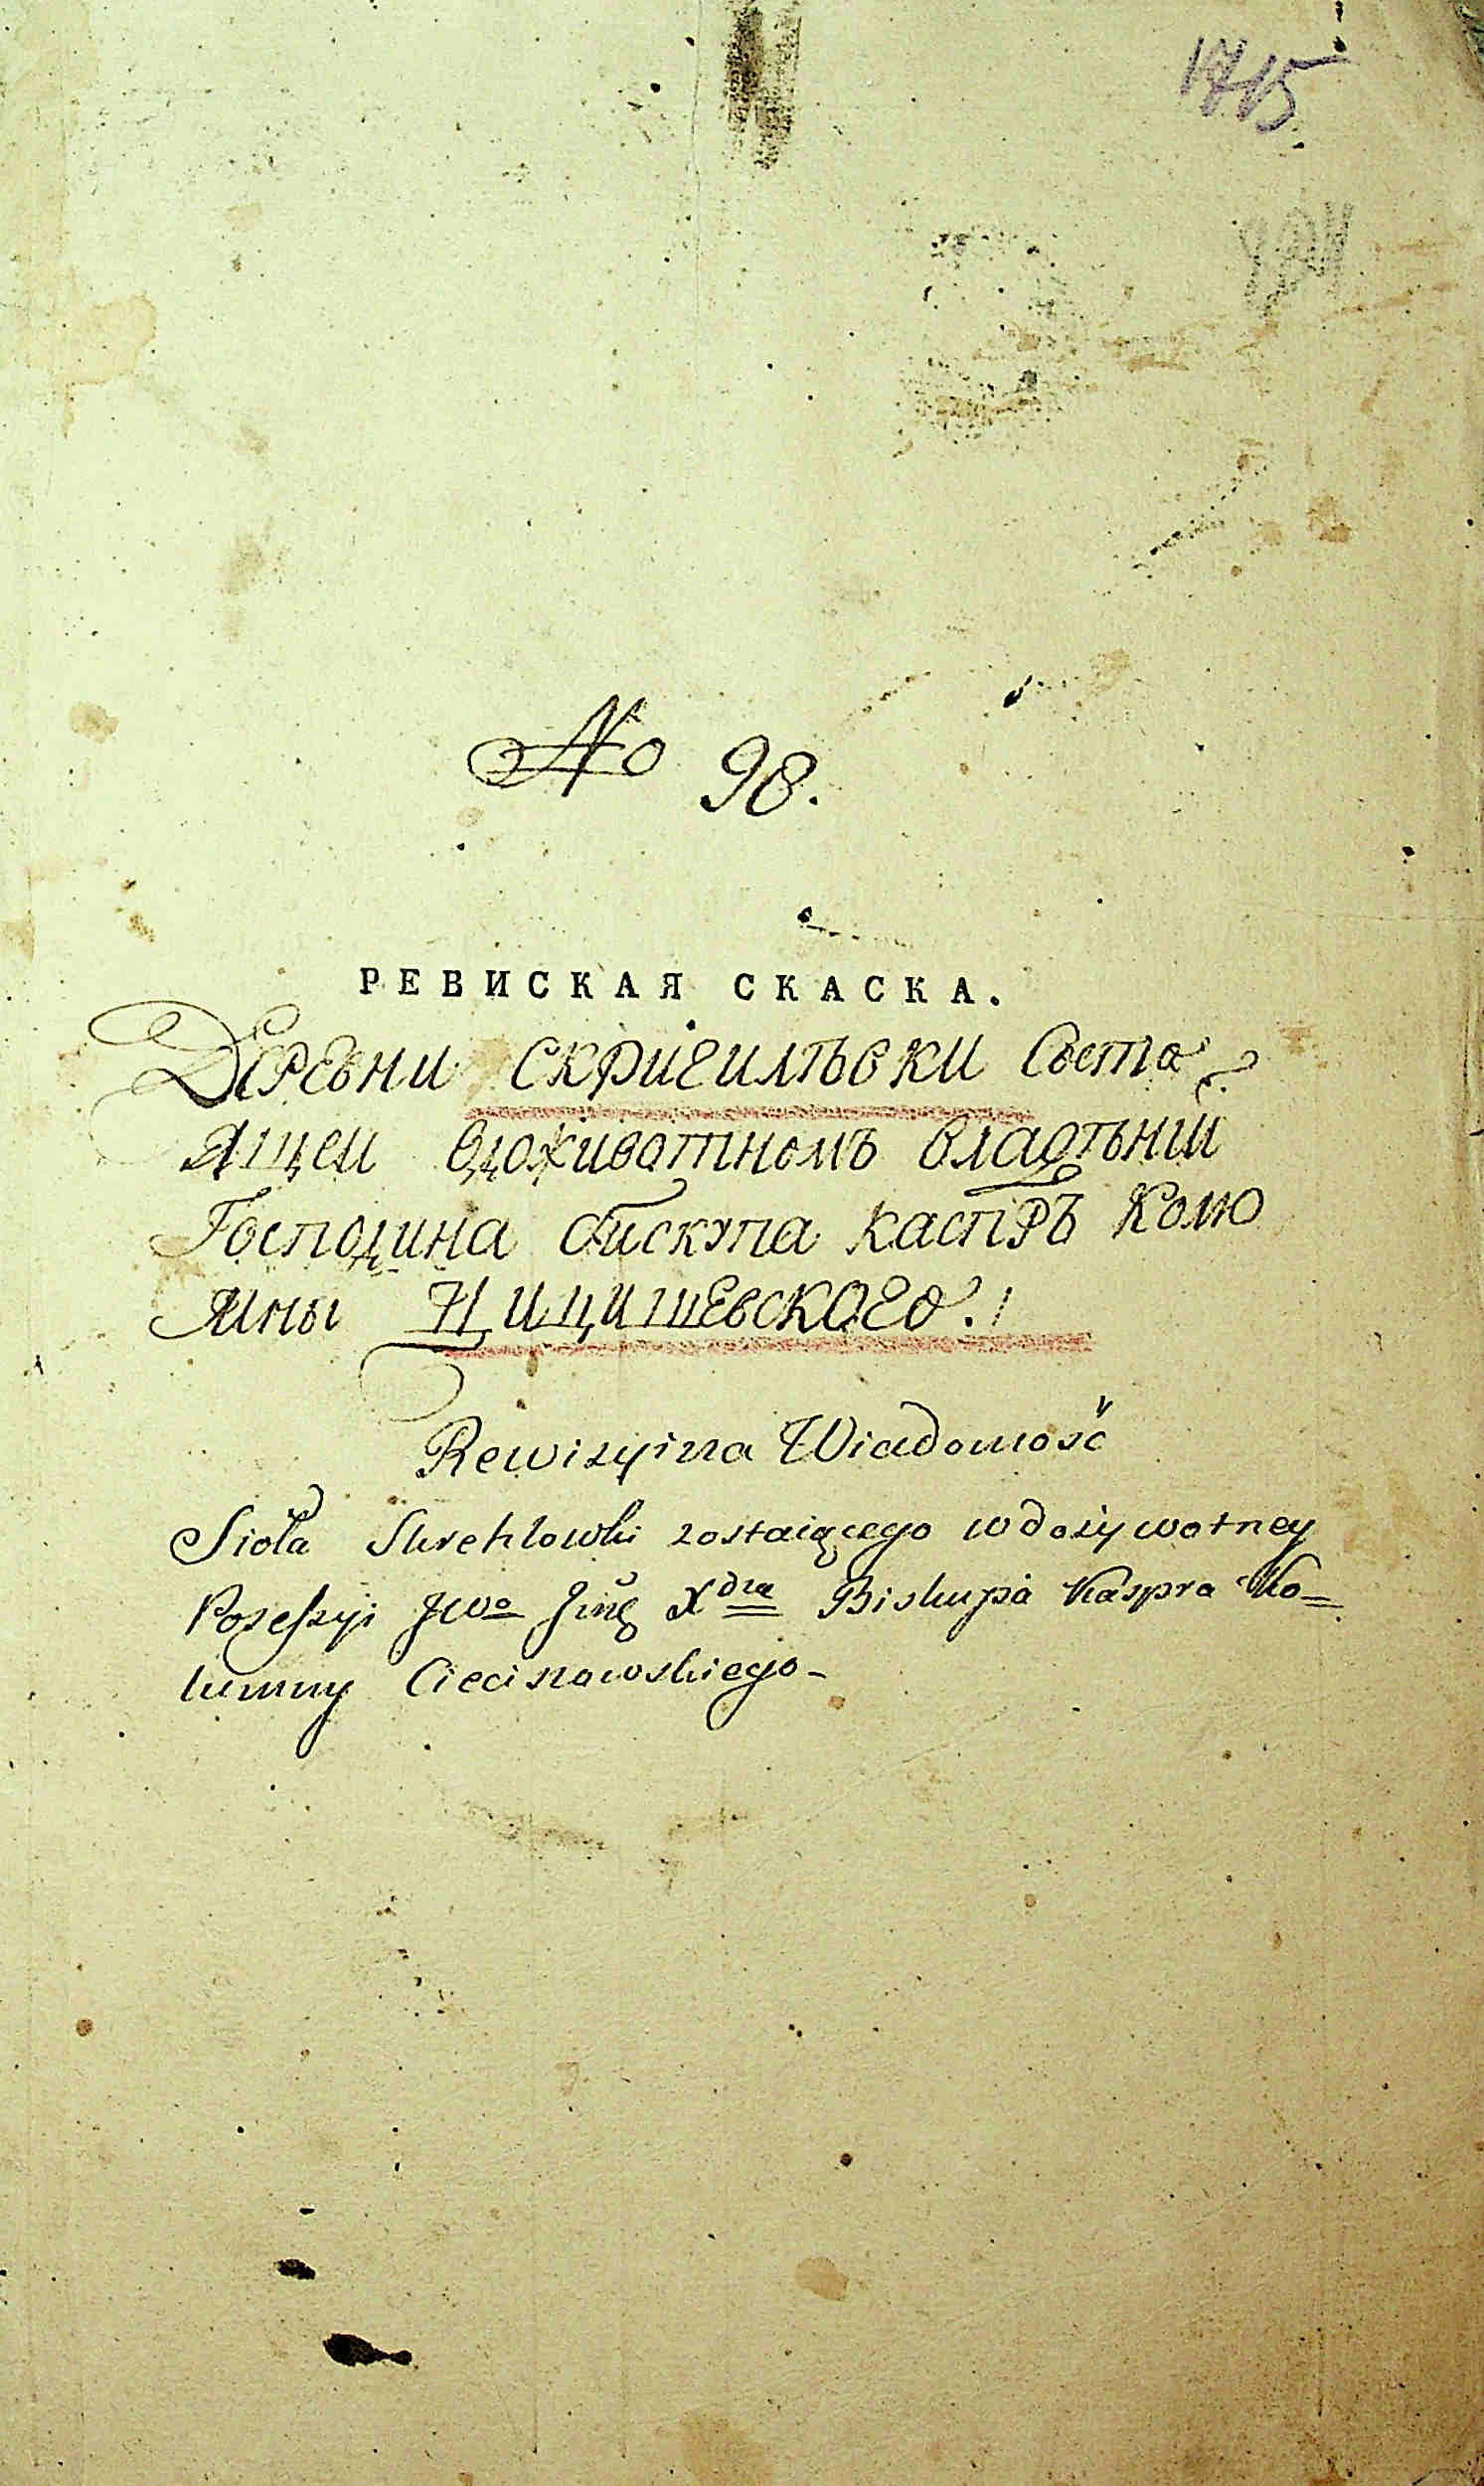 1715
No 98.
РЕВИСКАЯ СКАСКА.
Деревни скригилѣвки Соста
ящеи вдоживотномъ владѣнии
Господина бискупа каспръ Колю
мны Цицишевского.
Rewizyina Wiadomość
Sioła Skrehlowki zostaiącego w dożywotney
Posessyi JWo Jmę Xdza Biskupa Kaspra Ko=
lumny Cieciszowskiego-